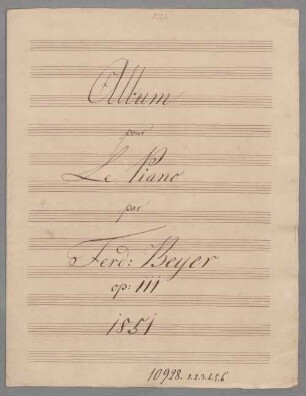 Album
pour
Le Piano
par
Ferd: Beyer
op: 111
1851
10928. 1.2.3.4.5.6